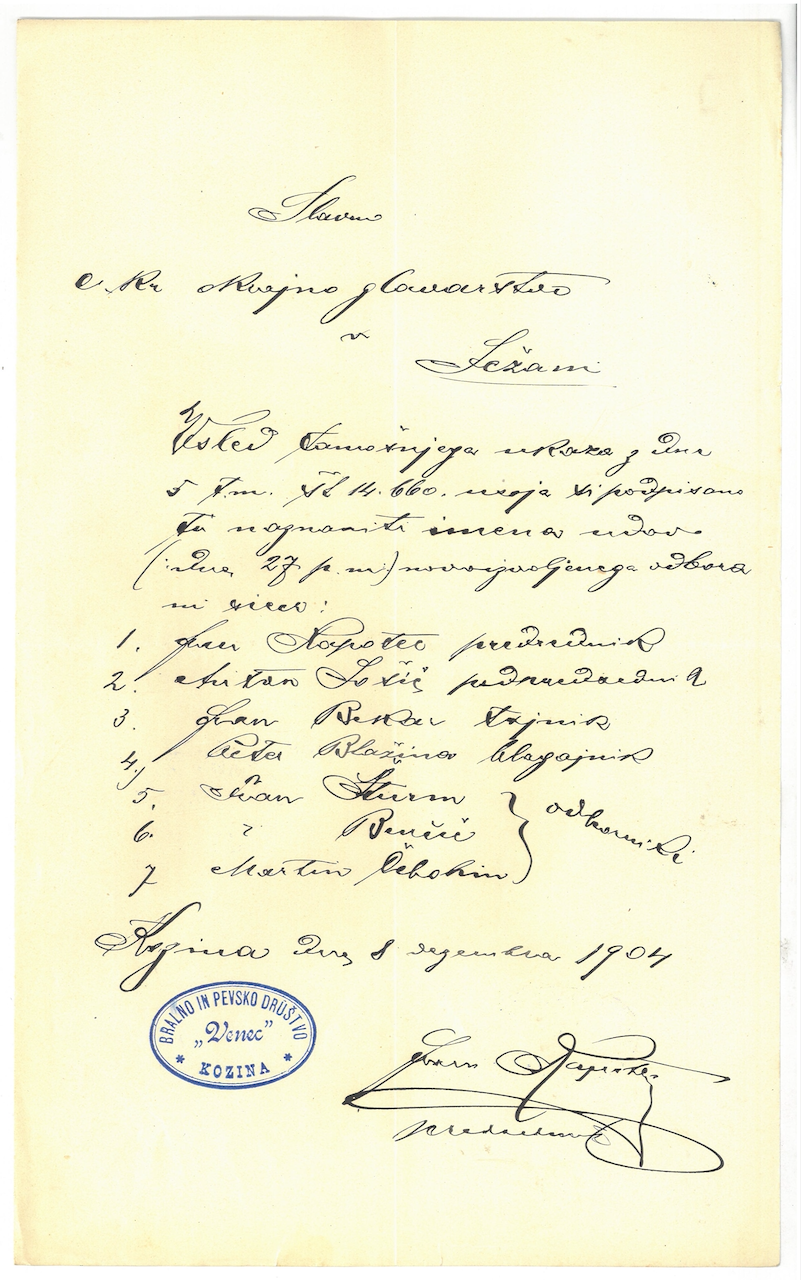 Slavno
c. kr. okrajno glavarstvo
v
Sežani
Vsled tamošnjega ukaza z dne
5 t.m. št 14.660. usoja si podpisano
tu naznaniti imena udov
(: dne 27 p. m :) novoizvoljenega odbora
in sicer:
1. Fran Napotec predsednik
2. Anton podpredsednik
3. Fran Bekar tajnik
4.) Peter Blažina blagajnik
5. Ivan Šturm
6. " Benčič
odborniki
7 Martin Čebohin
Kozina dne 8 dezembra 1904
BRALNO IN PEVSKO DRUŠTVO
„Venec"
* KOZINA *
Fran Napotec
predsednik